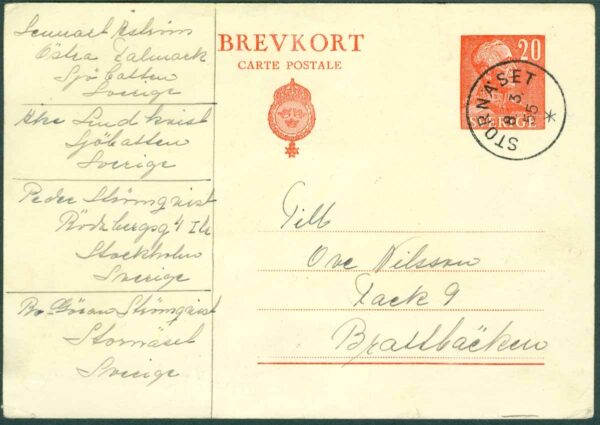 Lennart Åström
Östra Talmark
Sjöbotten
Sverige
Åke Lindkvist
Sjöbotten
Sverige
Peder Strömqvist
Rödabergsg 4
Stockholm
Sverige
Bo-Göran Strömqvist
Stornäset
Sverige
BREVKORT
CARTE POSTALE
20
SVERIGE
STORNÄSET
8 3
55
*
Till
Ove Nilsson
Fack 9
Brattbäcken